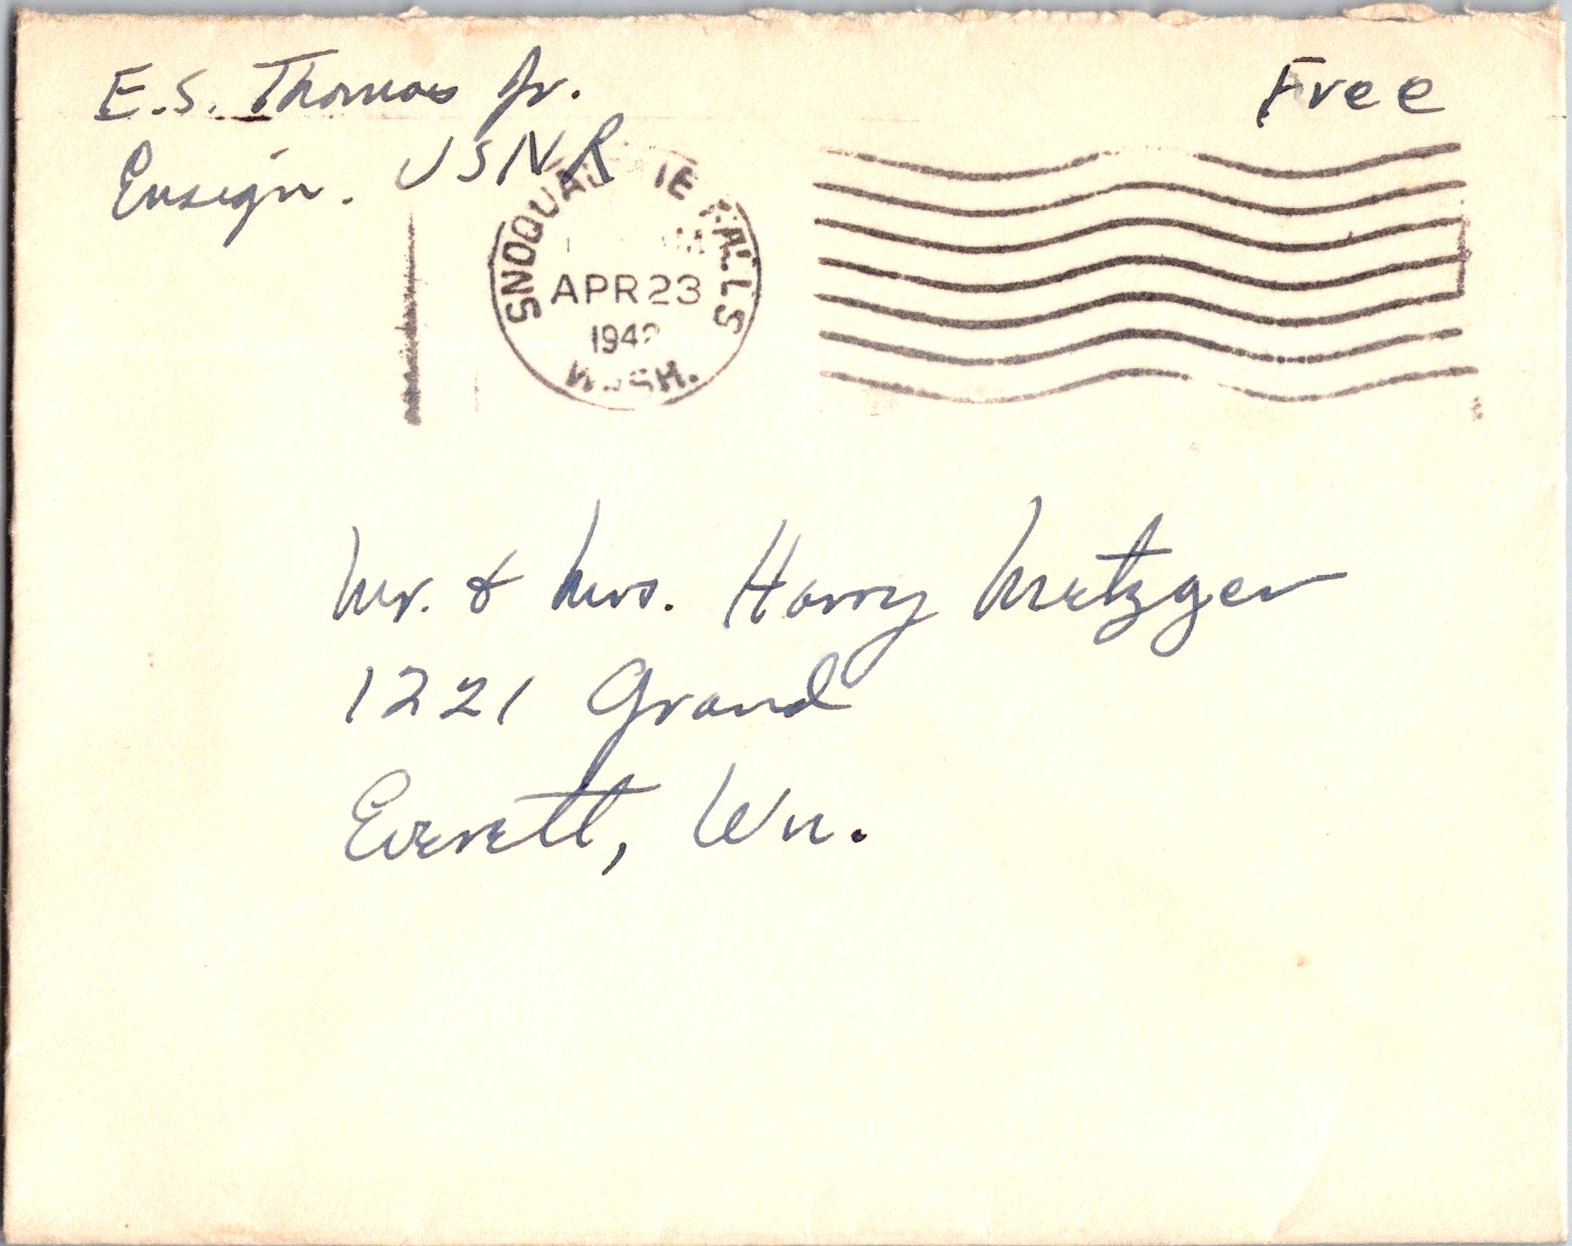 E.S. Thomas Jr.
Ensign. USNR
Free
SNOQUALMIE FALLS
APR 23
1942
WASH.
Mr. & Mrs. Harry Metzger
1221 Grand
Everett, Wn.